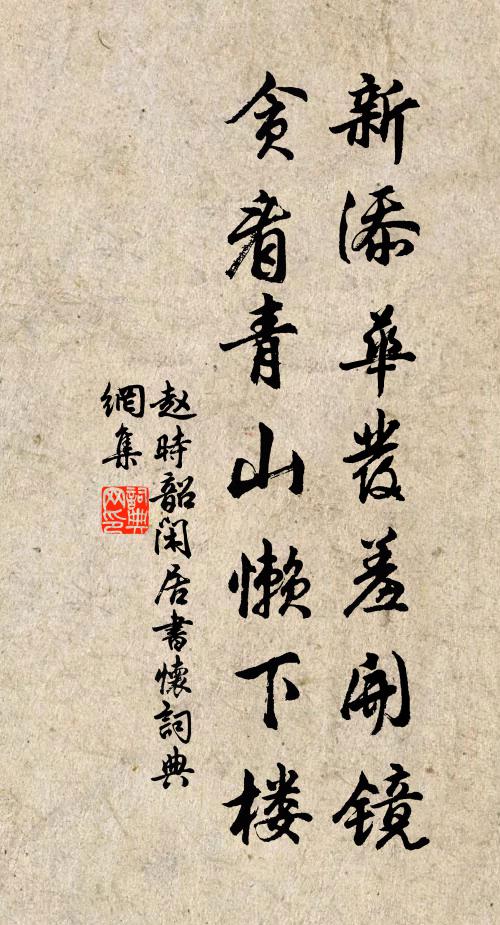 新添华发羞開镜
贪看青山懒下楼
赵時韶閑居書懷詞典
網集
詞典
网印